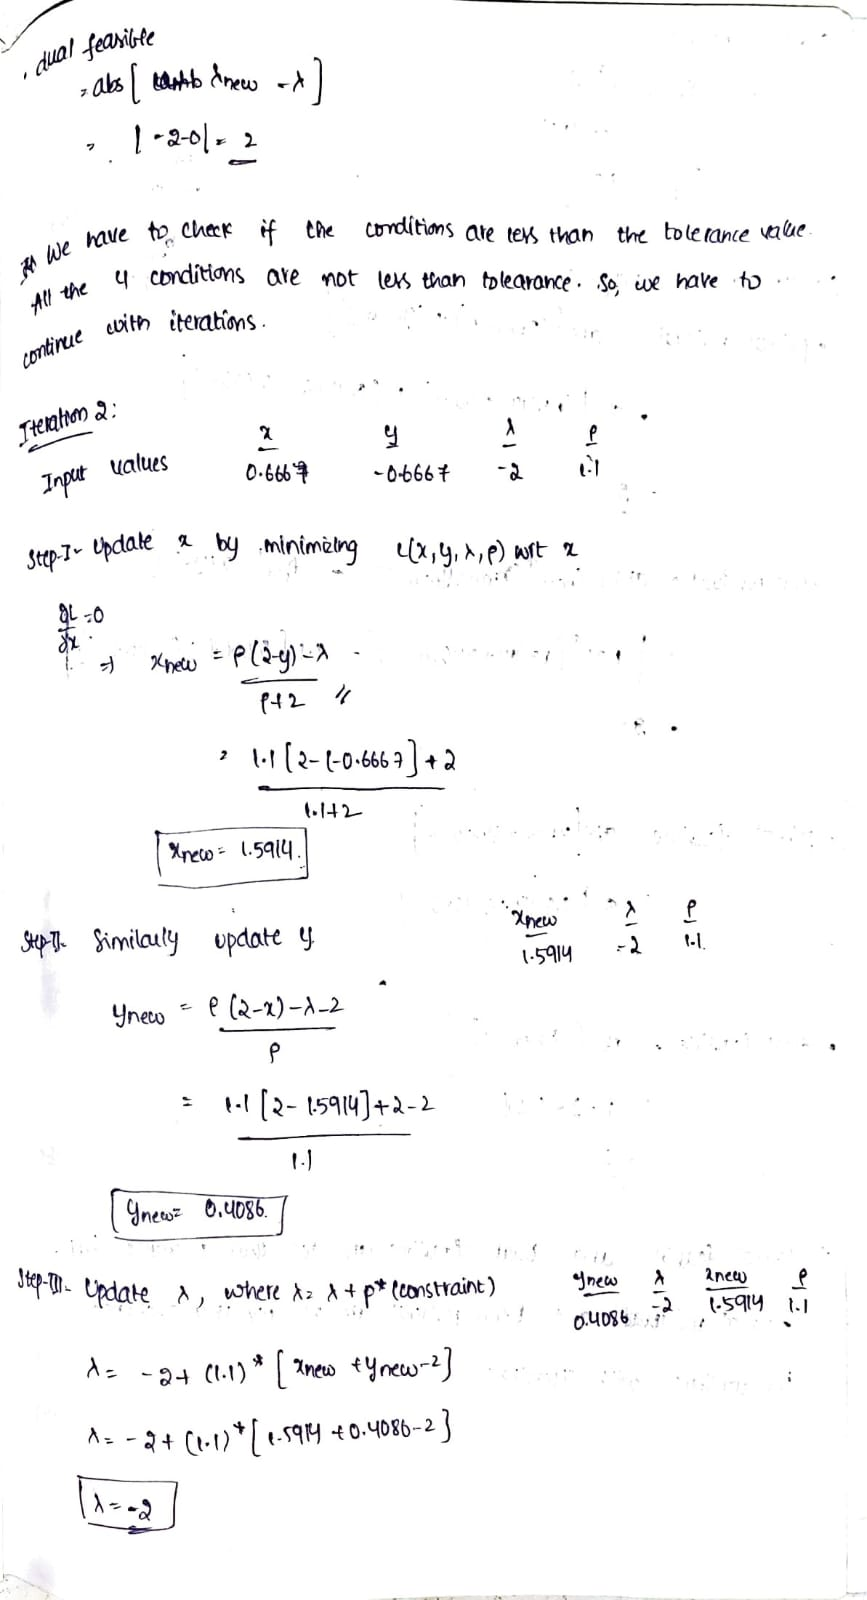 . dual feasible
= abs [ λnew - λ ]
= | -2-0| = 2
We have to check if the conditions are less than the tolerance value.
All the 4 conditions are not less than tolearance. So, we have to
continue with iterations.
Iteration 2:
x y λ ρ
Input values 0.6667 -0.6667 -2 1.1
Step-I- Update x by minimizing L(x, y, λ, ρ) wrt x
∂L/∂x = 0
⇒ xnew = ρ(2-y) - λ
ρ+2 //
= 1.1 [2-(-0.6667] + 2
1.1+2
xnew = 1.5914.
xnew λ ρ
Step-II- Similarly update y. 1.5914 -2 1.1.
ynew = ρ (2-x) - λ - 2
ρ
= 1.1 [2 - 1.5914] + 2 - 2
1.1
ynew = 0.4086.
ynew λ xnew ρ
Step-III- Update λ, where λ = λ + ρ* (constraint) 0.4086 -2 1.5914 1.1
λ = -2 + (1.1) * [ xnew + ynew - 2]
λ = - 2 + (1.1) * [ 1.5914 + 0.4086 - 2 ]
λ = -2